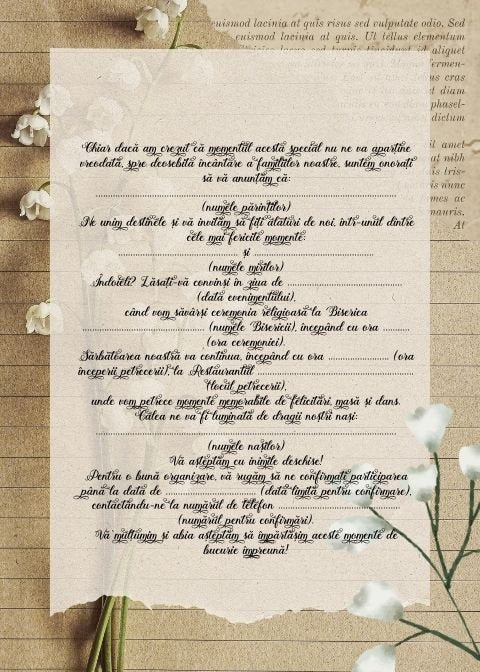 euismod lacinia at quis risus sed vulputate odio. Sed
euismod lacinia at quis. Ut tellus elementum
aliquet
fermen-
ut tellus cras
diam
phasel-
dictum
sit amet
at nibh
tris-
nunc
mes ac
mauris.
At
Chiar dacă am crezut că momentul acesta special nu ne va aparține
vreodată, spre deosebită încântare a familiilor noastre, suntem onorați
să vă anunțăm că:
(numele părinților)
Ne unim destinele și vă invităm să fiți alături de noi, într-unul dintre
cele mai fericite momente:
și
(numele mirilor)
Îndoieli? Lăsați-vă convinși în ziua de
(data evenimentului),
când vom săvârși ceremonia religioasă la Biserica
(numele Bisericii), începând cu ora
(ora ceremoniei).
Sărbătoarea noastră va continua, începând cu ora (ora
începerii petrecerii), la Restaurantul
(locul petrecerii),
unde vom petrece momente memorabile de felicitări, masă și dans.
Calea ne va fi luminată de dragii noștri nași:
(numele nașilor)
Vă așteptăm cu inimile deschise!
Pentru o bună organizare, vă rugăm să ne confirmați participarea
până la data de (data limită pentru confirmare),
contactându-ne la numărul de telefon
(numărul pentru confirmări).
Vă mulțumim și abia așteptăm să împărtășim aceste momente de
bucurie împreună!